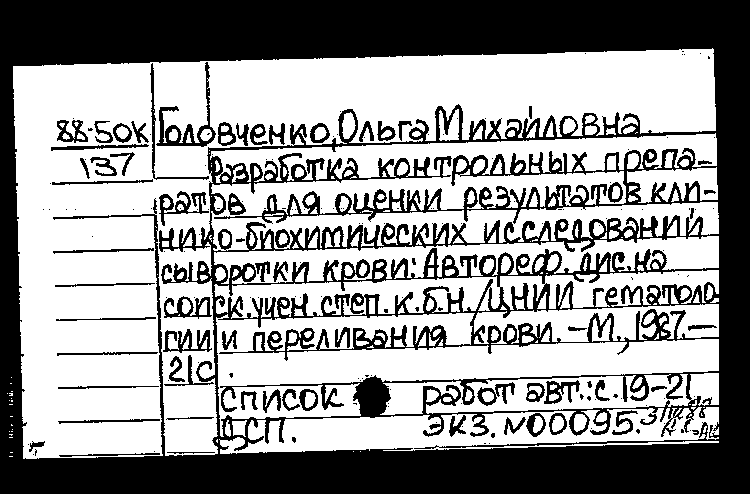 88-50К Головченко, Ольга Михайловна.
137 Разработка контрольных препа-
ратов для оценки результатов кли-
нико-биохимических исследований
сыворотки крови: Автореф. дис. на
соиск. учен. степ. к.б.н. /ЦНИИ гематоло-
гии и переливания крови. -М., 1987.-
21с.
Список работ авт.: с. 19-21
ДСП. Экз. №00095.